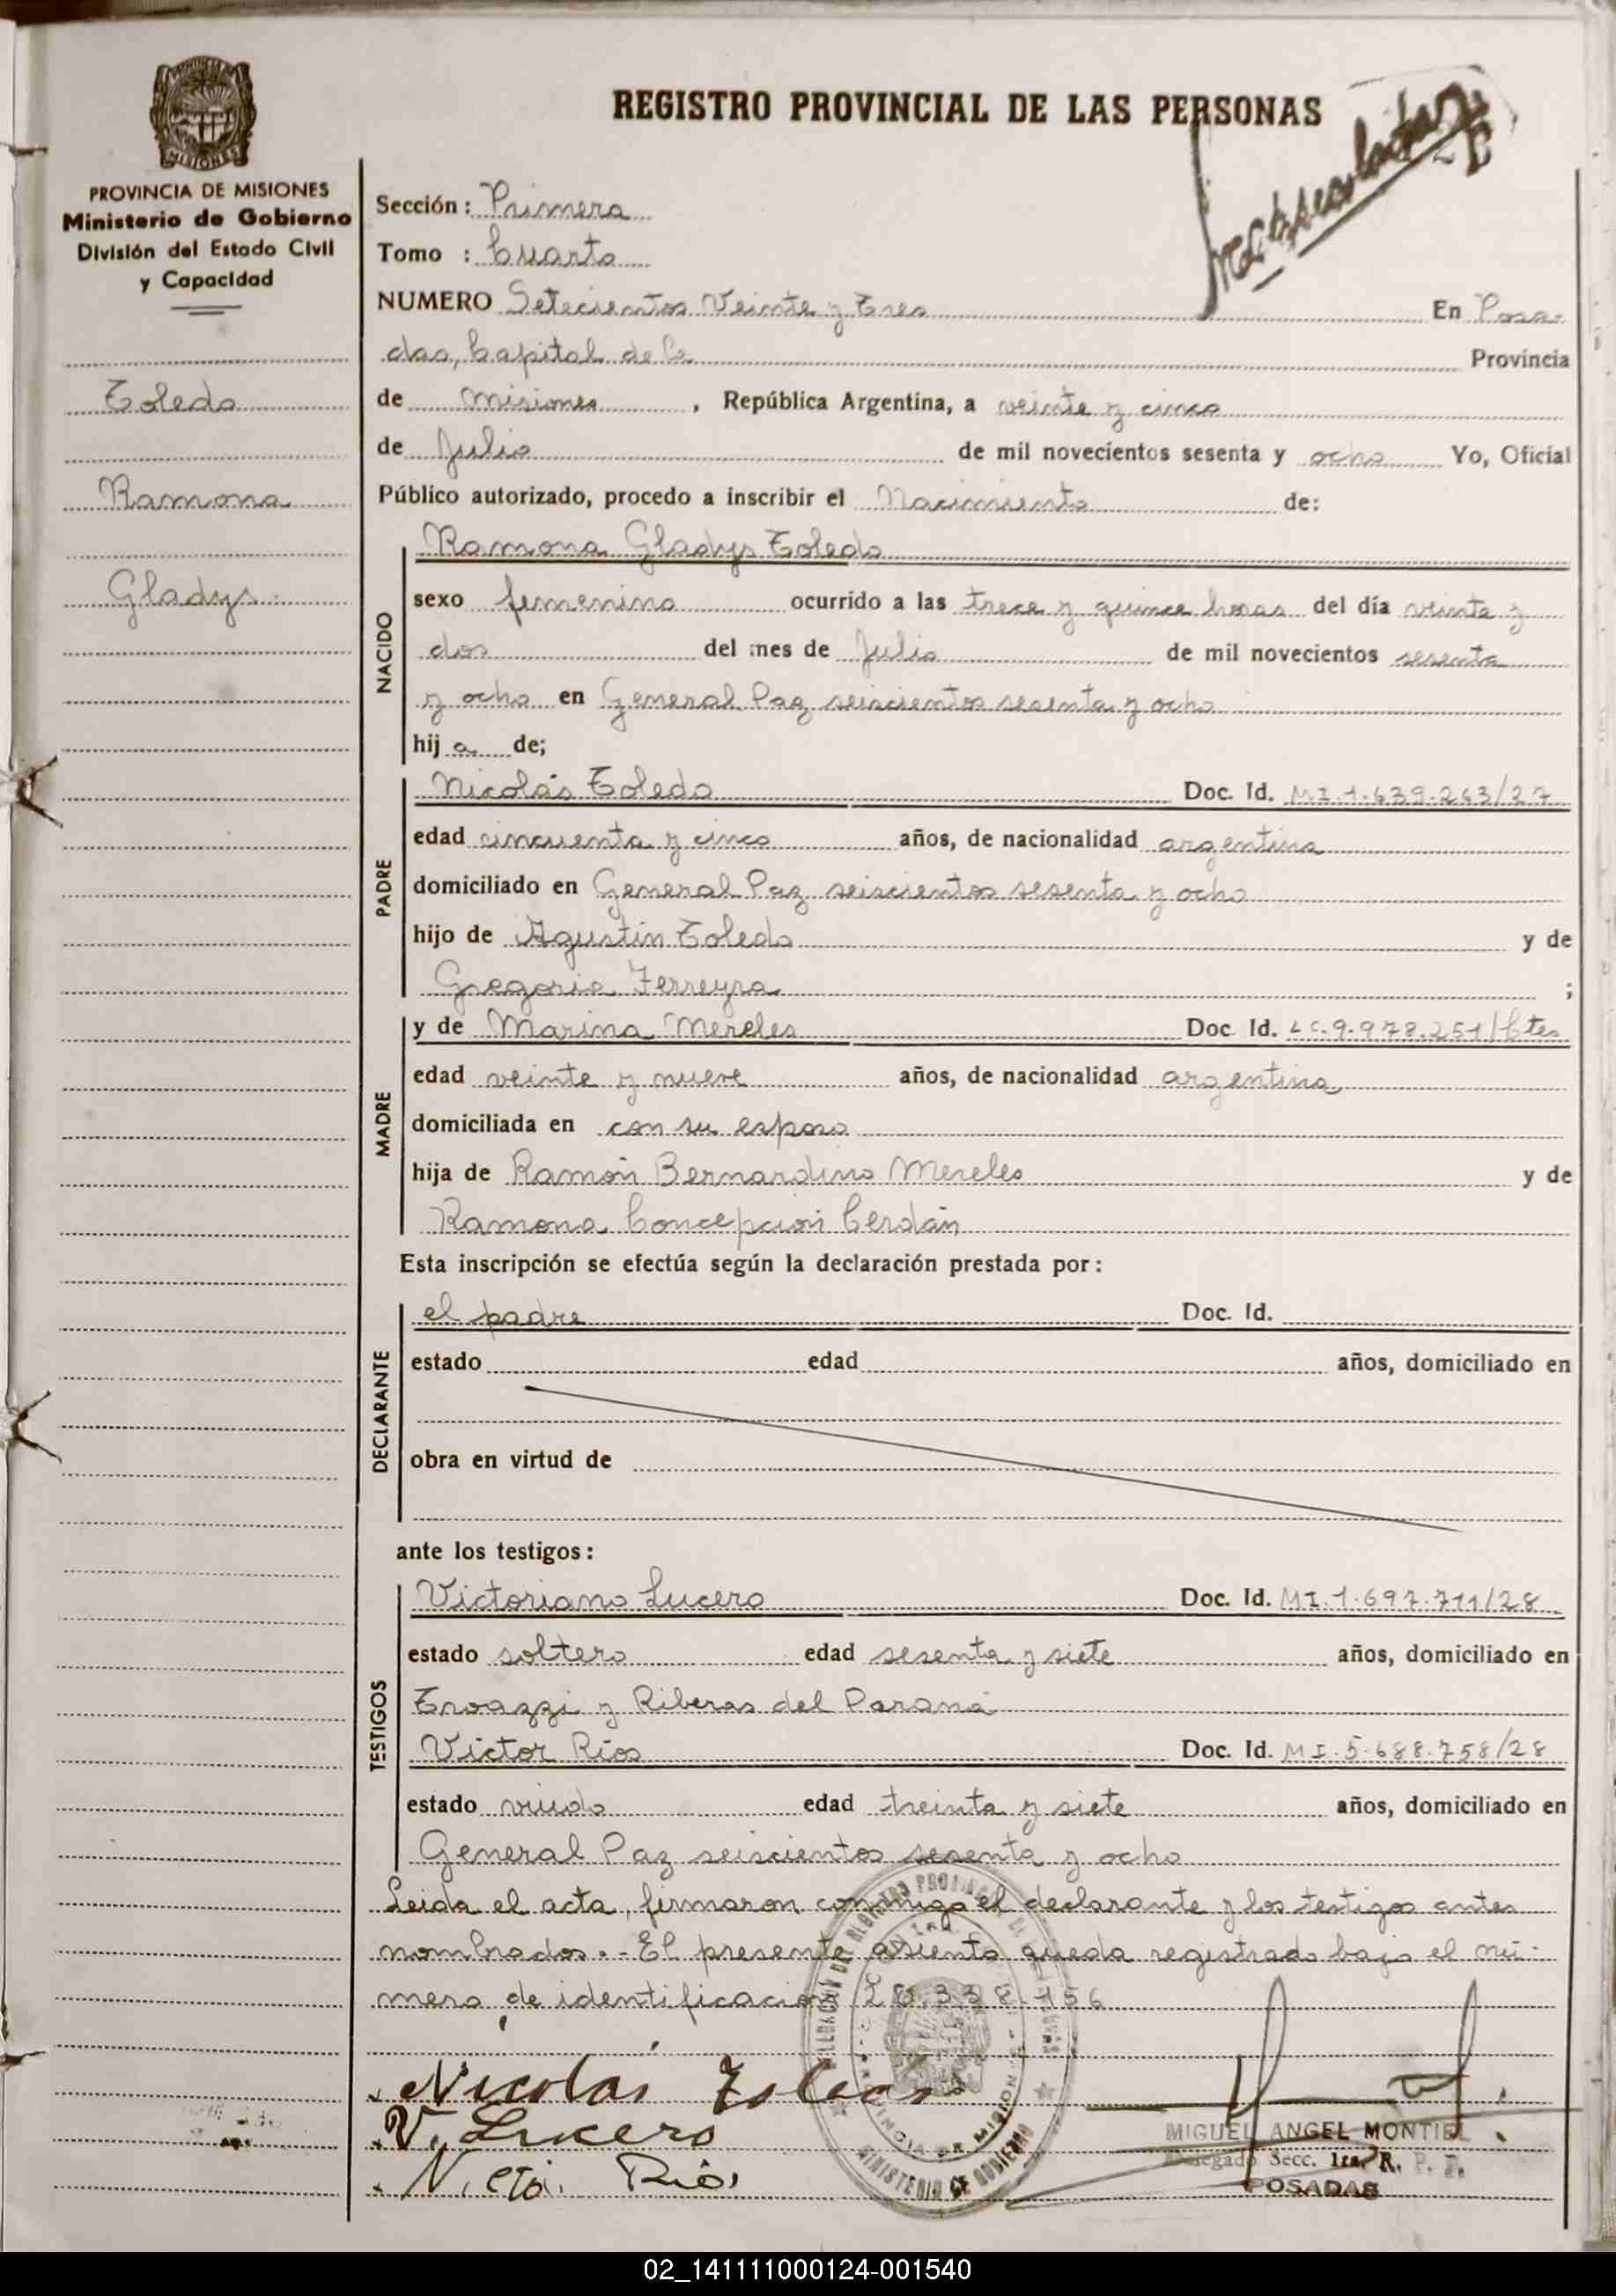 REGISTRO PROVINCIAL DE LAS PERSONAS
MISIONES
PROVINCIA DE MISIONES
Ministerio de Gobierno
División del Estado Civil
y Capacidad
Toledo
Ramona
Gladys
Sección: Primera
Tomo : Cuarto
NUMERO Setecientos Veinte y Tres En Posa-
das, Capital de la Provincia
de Misiones, República Argentina, a veinte y cinco
de Julio de mil novecientos sesenta y ocho Yo, Oficial
Público autorizado, procedo a inscribir el Nacimiento de:
NACIDO
Ramona Gladys Toledo
sexo femenino ocurrido a las trece y quince horas del día veinte y
dos del mes de Julio de mil novecientos sesenta
y ocho en General Paz seiscientos sesenta y ocho
hij a de;
PADRE
Nicolás Toledo Doc. Id. MI.1.639.263/27
edad cincuenta y cinco años, de nacionalidad argentina
domiciliado en General Paz seiscientos sesenta y ocho
hijo de Agustín Toledo y de
Gregoria Ferreyra ;
MADRE
y de Marina Mereles Doc. Id. LC.9.978.251/Ctes
edad veinte y nueve años, de nacionalidad argentina
domiciliada en con su esposo
hija de Ramón Bernardino Mereles y de
Ramona Concepción Cerdán
Esta inscripción se efectúa según la declaración prestada por:
DECLARANTE
el padre Doc. Id.
estado edad años, domiciliado en
obra en virtud de
ante los testigos:
TESTIGOS
Victoriano Lucero Doc. Id. MI.1.697.711/28
estado soltero edad sesenta y siete años, domiciliado en
Troazzi y Riberas del Paraná
Victor Ríos Doc. Id. MI.5.688.758/28
estado viudo edad treinta y siete años, domiciliado en
General Paz seiscientos sesenta y ocho
Leida el acta, firmaron conmigo el declarante y los testigos antes
nombrados.- El presente asiento queda registrado bajo el nú-
mero de identificación 20.338.156
Nicolás Toledo
V. Lucero
Victor Rios
MIGUEL ANGEL MONTIEL
Delegado Secc. 1ra. R. P. P.
POSADAS
MINISTERIO DE GOBIERNO
02_141111000124-001540